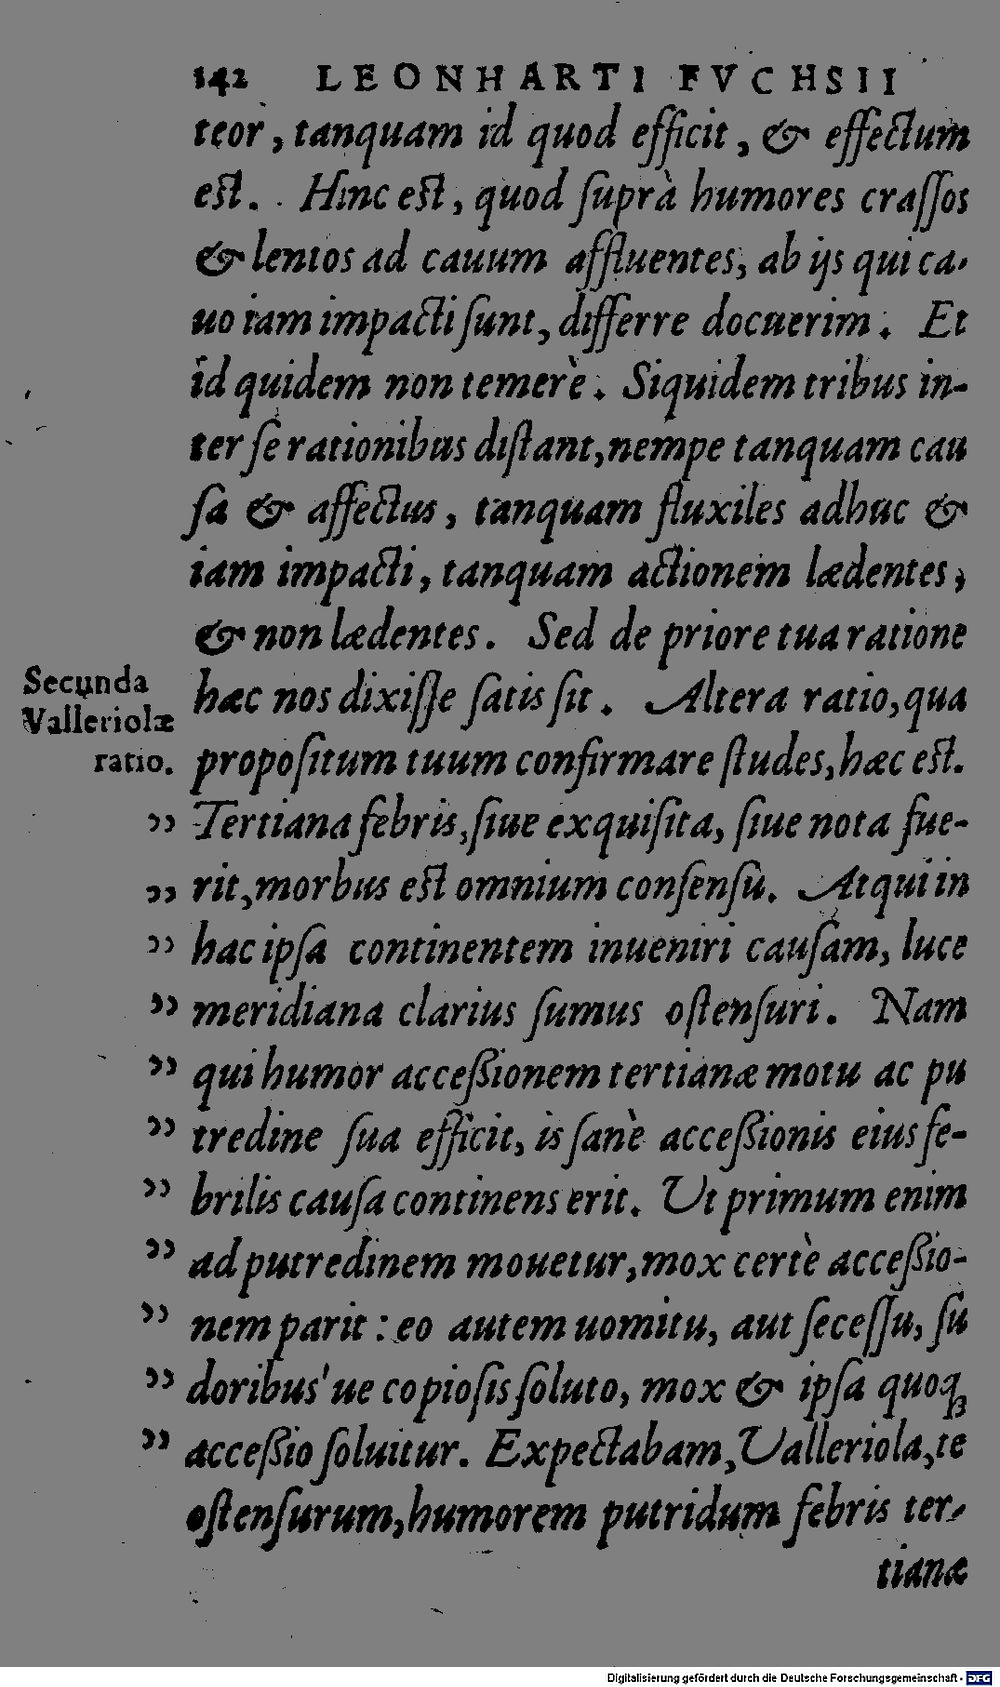 142 LEONHARTI FVCHSII
teor, tanquam id quod efficit, & effectum
est. Hinc est, quod ſuprà humores craſſos
& lentos ad cauum affluentes, ab ijs qui ca-
uo iam impacti ſunt, differre docuerim. Et
id quidem non temerè. Siquidem tribus in-
ter ſe rationibus diſtant, nempe tanquam cau
ſa & affectus, tanquam fluxiles adhuc &
iam impacti, tanquam actionem lædentes,
& non lædentes. Sed de priore tua ratione
hæc nos dixiſſe ſatis ſit. Altera ratio, qua
Secunda
Valleriolæ
ratio.
propoſitum tuum confirmare ſtudes, hæc est.
„ Tertiana febris, ſiue exquiſita, ſiue nota fue-
„ rit, morbus est omnium conſenſu. Atqui in
„ hac ipſa continentem inueniri cauſam, luce
„ meridiana clarius ſumus oſtenſuri. Nam
„ qui humor acceßionem tertianæ motu ac pu
„ tredine ſua efficit, is ſanè acceßionis eius fe-
„ brilis cauſa continens erit. Ut primum enim
„ ad putredinem mouetur, mox certè acceßio-
„ nem parit: eo autem uomitu, aut ſeceſſu, ſu
„ doribus'ue copioſis ſoluto, mox & ipſa quoqꝫ
„ acceßio ſoluitur. Expectabam, Valleriola, te
oſtenſurum, humorem putridum febris ter-
tianæ
Digitalisierung gefördert durch die Deutsche Forschungsgemeinschaft - DFG